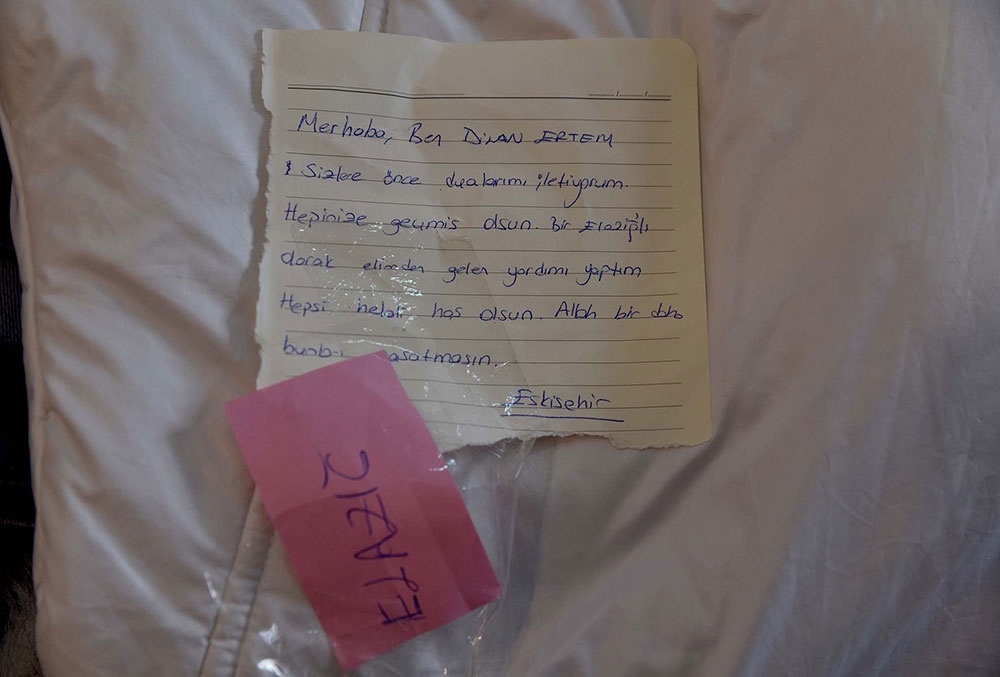 Merhaba, Ben DİLAN ERTEM
Sizlere önce dualarımı iletiyorum.
Hepinize geçmiş olsun. Bir Elazığ'lı
olarak elimden gelen yardımı yaptım
Hepsi helali hoş olsun. Allah bir daha
Eskişehir